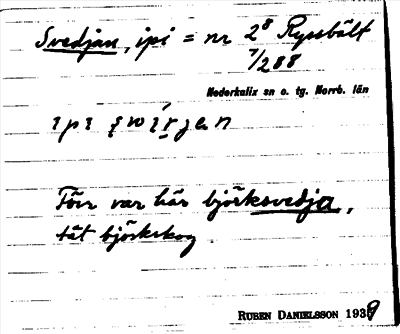 Svedjan, ipi = nr 2⁸ Ryssbält
7/288
Nederkalix sn o. tg. Norrb. län
Förr var här björksvedja,
tät björkskog.
RUBEN DANIELSSON 1939